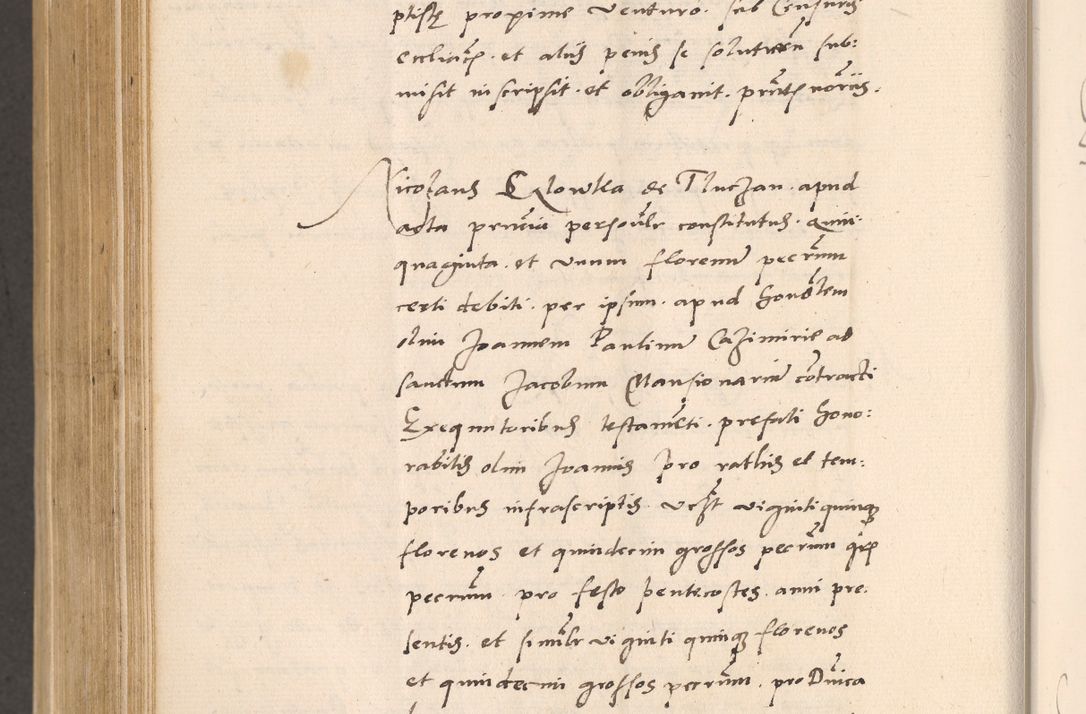 ptistę proxime venturo. sub Censuris
eccliat͠ꝭ. et aliis penis se solutum sub:
misit inscripsit. et obligavit. pr̃ntꝭ nor̃iis.
Nicolaus Glowka de Tluczan. apud
acta pr̃ntia personãlr constitutus. quin:
quaginta. et unum florenum pecc̃rum
certi debiti. per ipsum. apud honoblem
olim Joannem Paulinum Cazimirie ad
sanctum Jacobum Mansionarium cõntracti
Exequutoribus testameñti. prefati hono:
rabilis olim Joannis pro rathis et tem:
poribus infrascriptis vzlt viginti quinqꝫ
florenos et quindecim grossos pecc̃rum
peccñum. pro festo pentecostes. anni pre:
sentis. et simil̃r viginti quinqꝫ florenos
et quindecim grossos pecc̃rum. pro Dñica